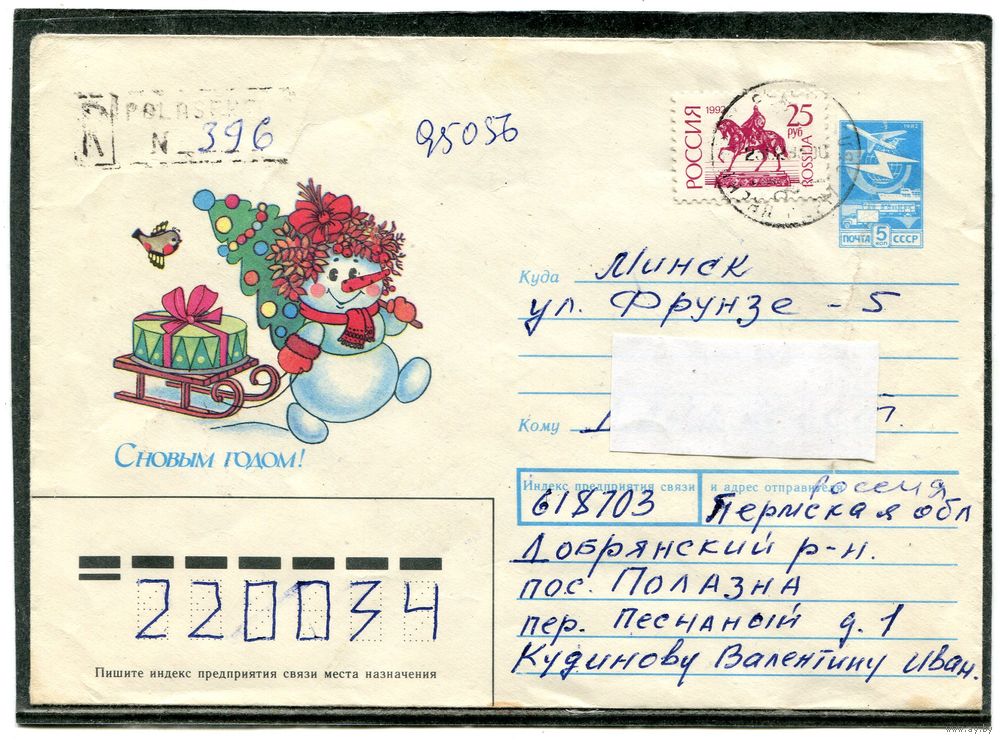 R
N 396
95056
1992
РОССИЯ
25
руб
ROSSIJA
1982
ПОЧТА 5 КОП СССР
Куда Минск
ул. Фрунзе - 5
Кому
С новым годом!
Индекс предприятия связи и адрес отправителя
Россия
618703 Пермская обл
Добрянский р-н.
пос. Полазна
пер. Песчаный д. 1
Кудинову Валентину Иван.
220034
Пишите индекс предприятия связи места назначения
www.ay.by